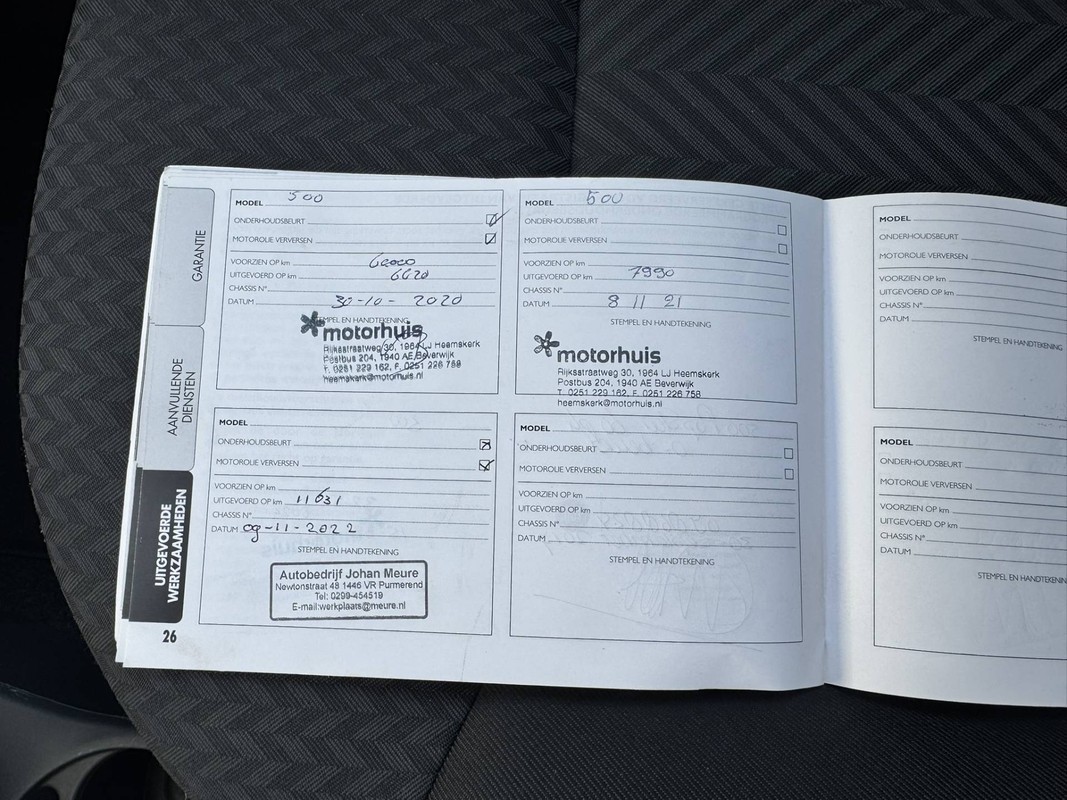 GARANTIE
AANVULLENDE
DIENSTEN
UITGEVOERDE
WERKZAAMHEDEN
26
MODEL 500
ONDERHOUDSBEURT
MOTOROLIE VERVERSEN
VOORZIEN OP km
UITGEVOERD OP km 6620
CHASSIS N°
DATUM 30-10-2020
STEMPEL EN HANDTEKENING
motorhuis
Rijksstraatweg 30, 1964 LJ Heemskerk
Postbus 204, 1940 AE Beverwijk
T. 0251 229 162, F. 0251 226 758
heemskerk@motorhuis.nl
MODEL 500
ONDERHOUDSBEURT
MOTOROLIE VERVERSEN
VOORZIEN OP km
UITGEVOERD OP km 7990
CHASSIS N°
DATUM 8 11 21
STEMPEL EN HANDTEKENING
motorhuis
Rijksstraatweg 30, 1964 LJ Heemskerk
Postbus 204, 1940 AE Beverwijk
T. 0251 229 162, F. 0251 226 758
heemskerk@motorhuis.nl
MODEL
ONDERHOUDSBEURT
MOTOROLIE VERVERSEN
VOORZIEN OP km
UITGEVOERD OP km 11631
CHASSIS N°
DATUM 09-11-2022
STEMPEL EN HANDTEKENING
Autobedrijf Johan Meure
Newtonstraat 48 1446 VR Purmerend
Tel: 0299-454519
E-mail:werkplaats@meure.nl
MODEL
ONDERHOUDSBEURT
MOTOROLIE VERVERSEN
VOORZIEN OP km
UITGEVOERD OP km
CHASSIS N°
DATUM
STEMPEL EN HANDTEKENING
MODEL
ONDERHOUDSBEURT
MOTOROLIE VERVERSEN
VOORZIEN OP km
UITGEVOERD OP km
CHASSIS N°
DATUM
STEMPEL EN HANDTEKENING
MODEL
ONDERHOUDSBEURT
MOTOROLIE VERVERSEN
VOORZIEN OP km
UITGEVOERD OP km
CHASSIS N°
DATUM
STEMPEL EN HANDTEKENIN